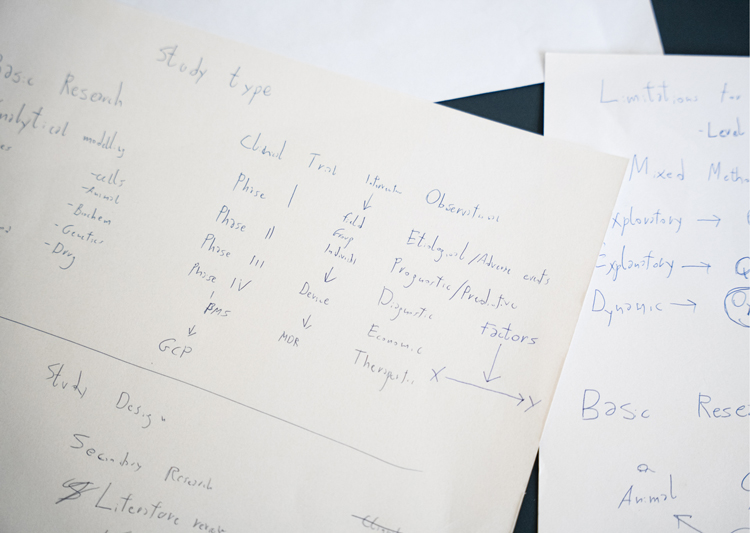 Study type
Basic Research
Analytical
-cells
-Animal
-Biochem
-Genetics
-Drug
Clinical Trial
Phase I
Phase II
Phase III
Phase IV
PMS
GCP
Intervention
Field
Group
Individ
Device
MDR
Observational
Etiological/Adverse events
Prognostic/Predictive
Diagnostic
Economic
Therapeutic
Factors
X → Y
Study Design
Secondary Research
Literature review
Limitations for
-Level
Mixed Meth
Exploratory →
Explanatory →
Dynamic →
Basic Rese
on
Animal